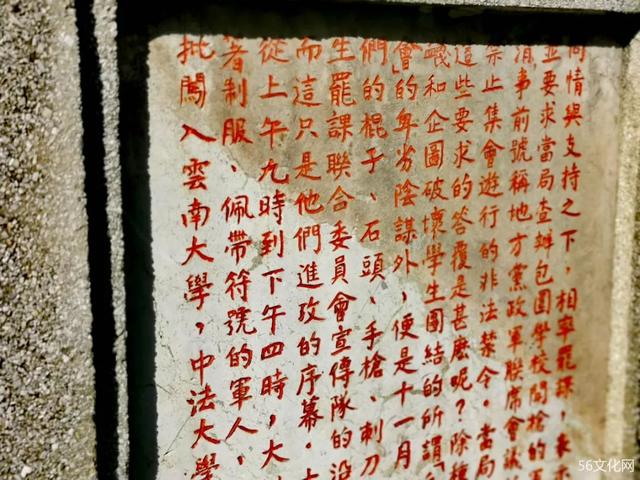 同情與支持之下，相率罷課，表示
並要求當局查辦包圍學校開槍的軍
事前號稱地方黨政軍聯席會議
禁止集會遊行的非法禁令。當局
這些要求的答覆是甚麽呢？除種
衊和企圖破壞學生團結的所謂「
會」的卑劣陰謀外，便是十一月
們的棍子、石頭、手槍、刺刀
生罷課聯合委員會宣傳隊的沿
而這只是他們進攻的序幕。
從上午九時到下午四時，大
著制服、佩帶符號的軍人，
批闖入雲南大學，中法大學
56文化网